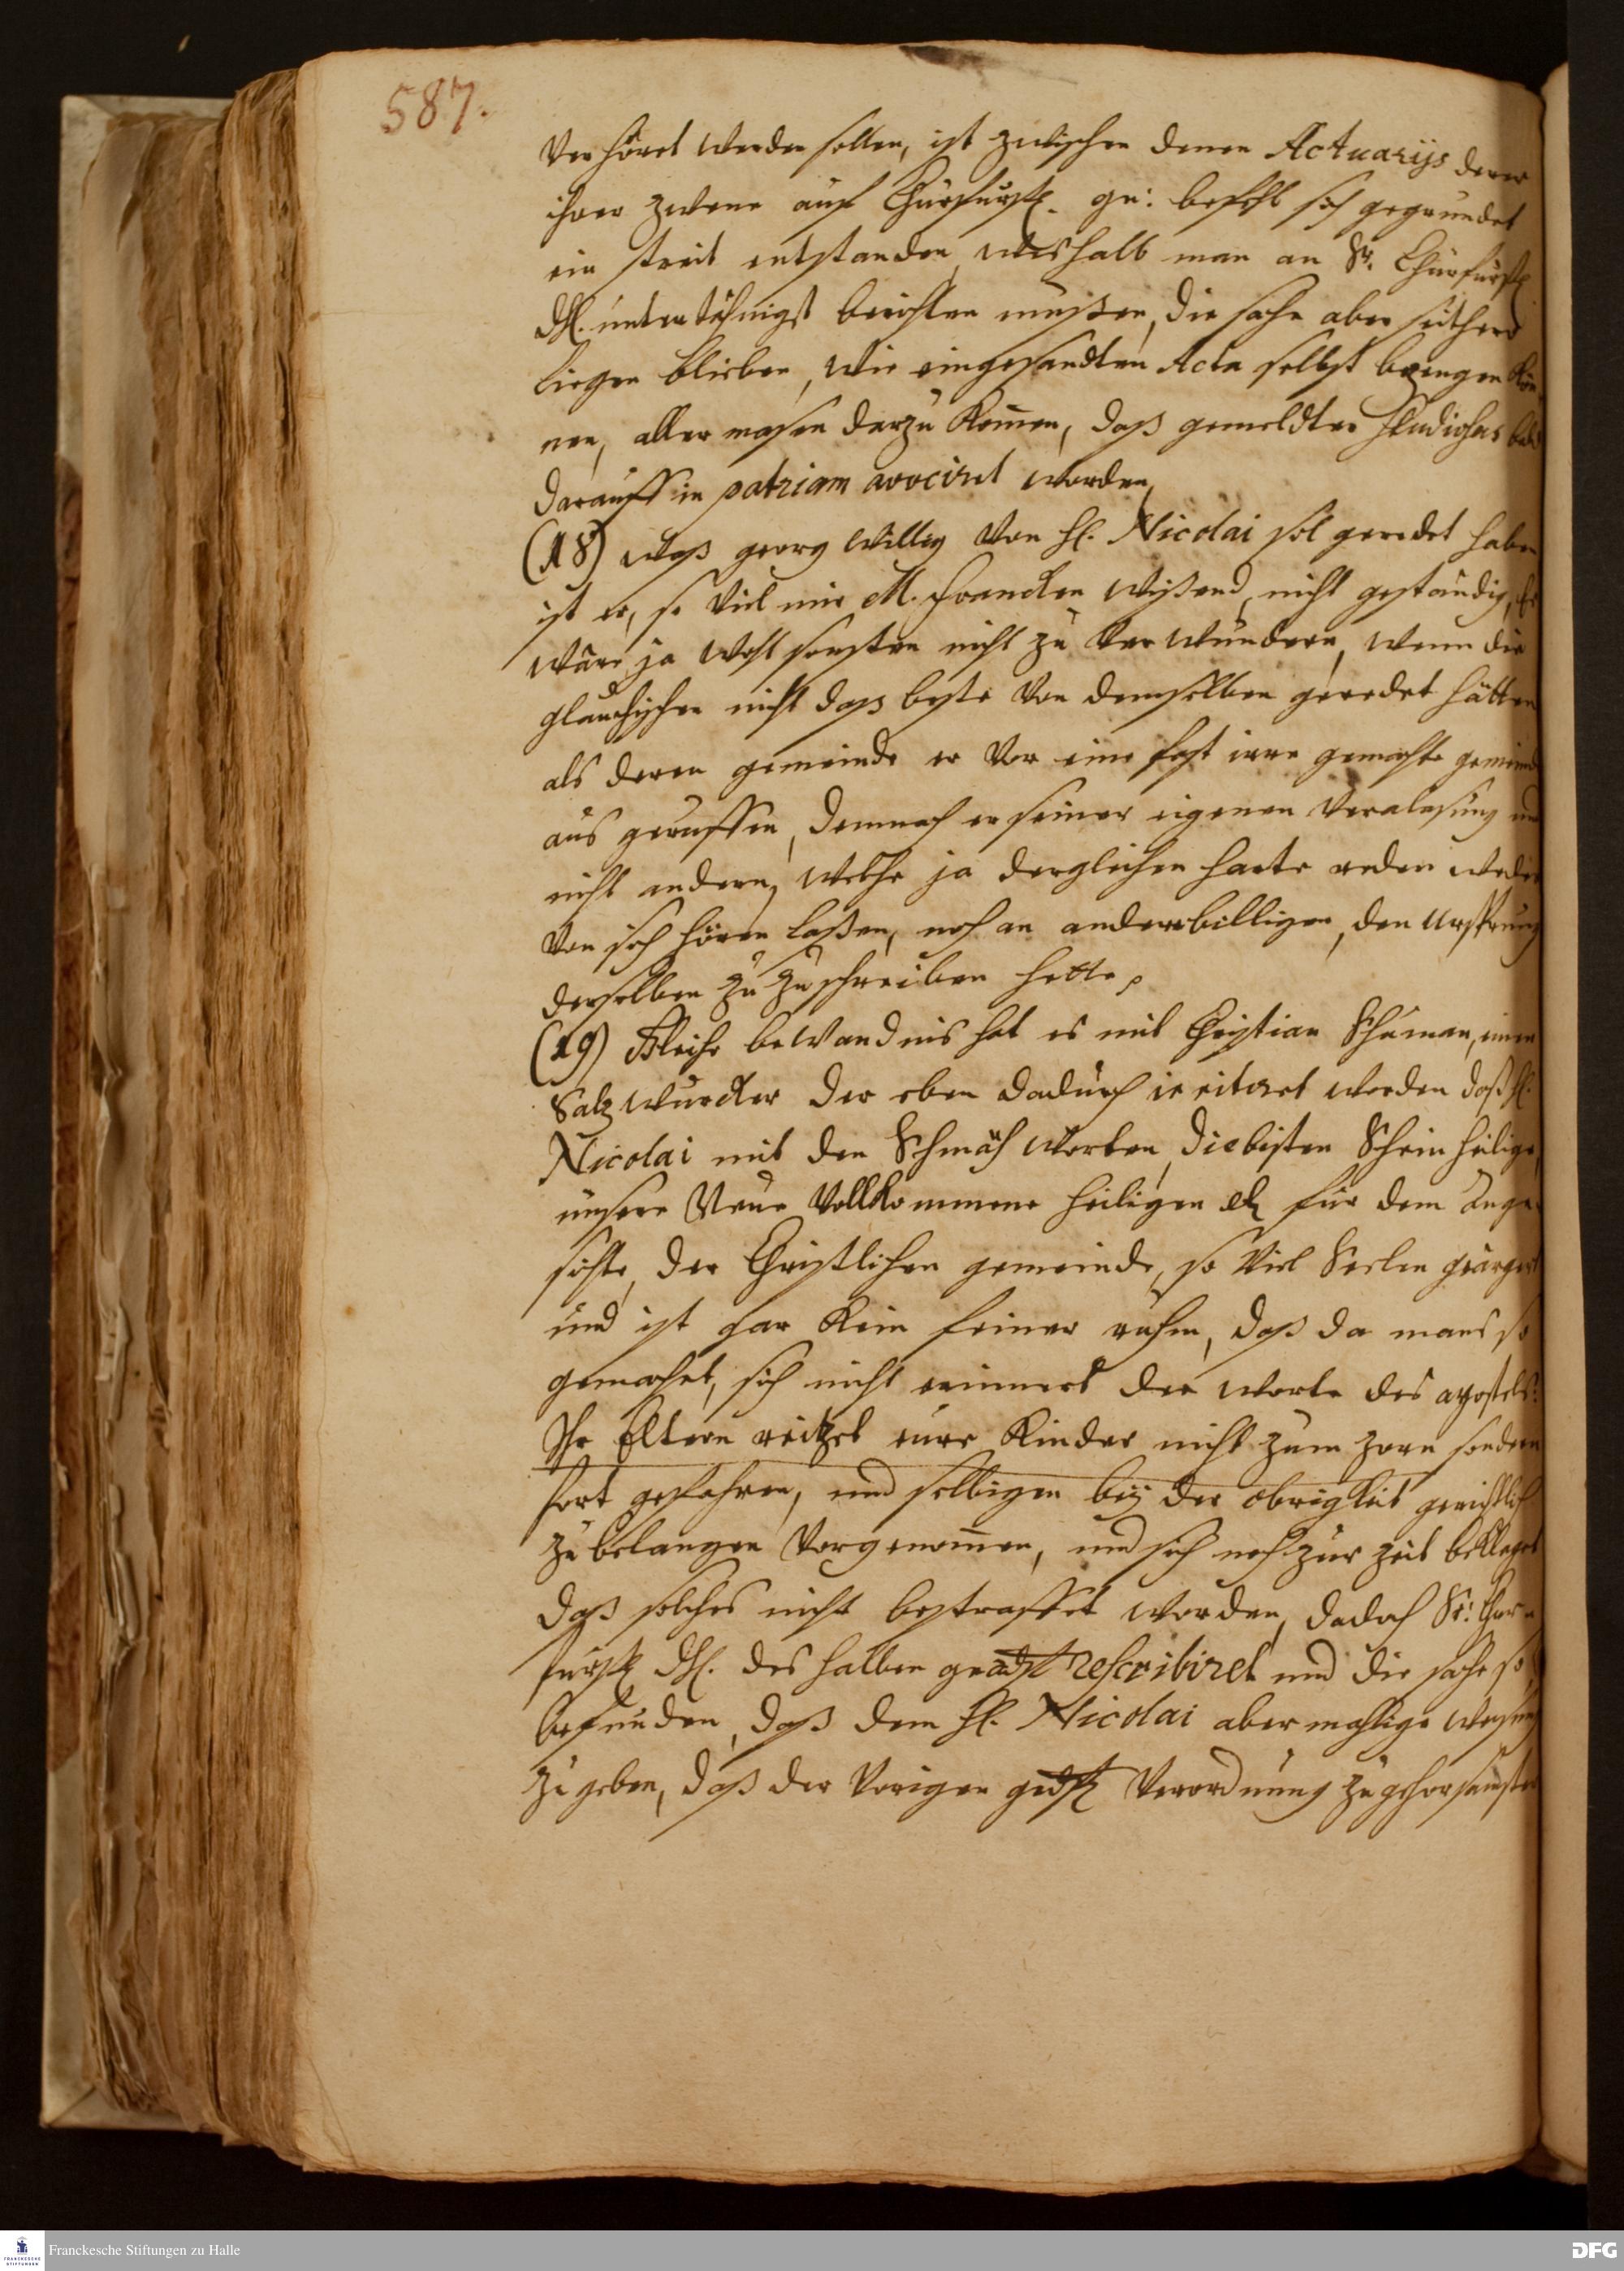 587.
Verhöret werden sollen, ist zwischen denen Actuarijs derer
ihrer zweene auf Churfürstl. gn: befehl sich gegründet
ein streit entstanden, weshalb man an Sr. Churfürstl
Dhl. unterthänigst berichten müßen, die sache aber seithero
liegen blieben, wie eingesandten Acta selbst bezeugen kön-
nen, aller masen darzu kom̄en, daß gemeldter Studiosus bald
darauff in patriam avociret worden,
(18) Waß georg Willig Von H. Nicolai sol geredet haben
ist er, so viel mir M. Francken wißend, nicht geständig, Es
wäre ja wohl sonsten nicht zu verwundern, wenn die
glauchischen nicht daß beste Von demselben geredet hätten
als deren gemeinde er vor eine fast irre gemachte gemeinde
aus geruffen, demnach er seiner eigenen Veralasung und
nicht andern, welche ja dergleichen harte reden weder
Von sich hören laßen, noch an andern billigen, den Ursprung
derselben zu zu schreiben hette,
(19) Gleiche bewandnis hat es mit Christian Schuman, einen
Saltzwürcker der eben dadurch irritiret worden daß H.
Nicolai mit den Schmäh worten, die bösten Schein heilige,
unsere Neue Vollkommene heiligen etc für dem Ange-
sichte, der Christlichen gemeinde, so viel Seelen geärgert
und ist gar kein feiner ruhm, daß da mans so
gemachet, sich nicht erinnert der worte des apostels:
Ihr Eltern reitzet eure Kinder nicht zum zorn sondern
fort gefahren, und selbigen bey der obrigkeit gerichtlich
zu belangen vorgenom̄en, und sich noch zur zeit beklaget
daß solches nicht bestraffet worden, da doch Sr: Chur-
fürstl Dhl. deshalben gnädst rescribiret und die sache so
befunden, daß dem H. Nicolai abermahlige weisung
zu geben, daß der vorigen gndstl Verordnung zu gehorsamster
Franckesche Stiftungen zu Halle
DFG